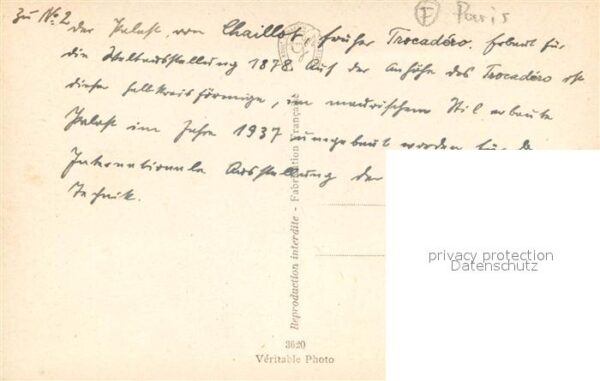 zu No. 2
Der Palast von Chaillot, früher Trocadéro. Erbaut für
die Weltausstellung 1878. Auf der Anhöhe des Trocadéro ist
dieser halbkreisförmige, im maurischem Stil erbaute
Palast im Jahre 1937 umgebaut worden für d
Internationale Ausstellung der
Technik.
F Paris
Reproduction interdite - Fabrication Française
3620
Véritable Photo
privacy protection
Datenschutz